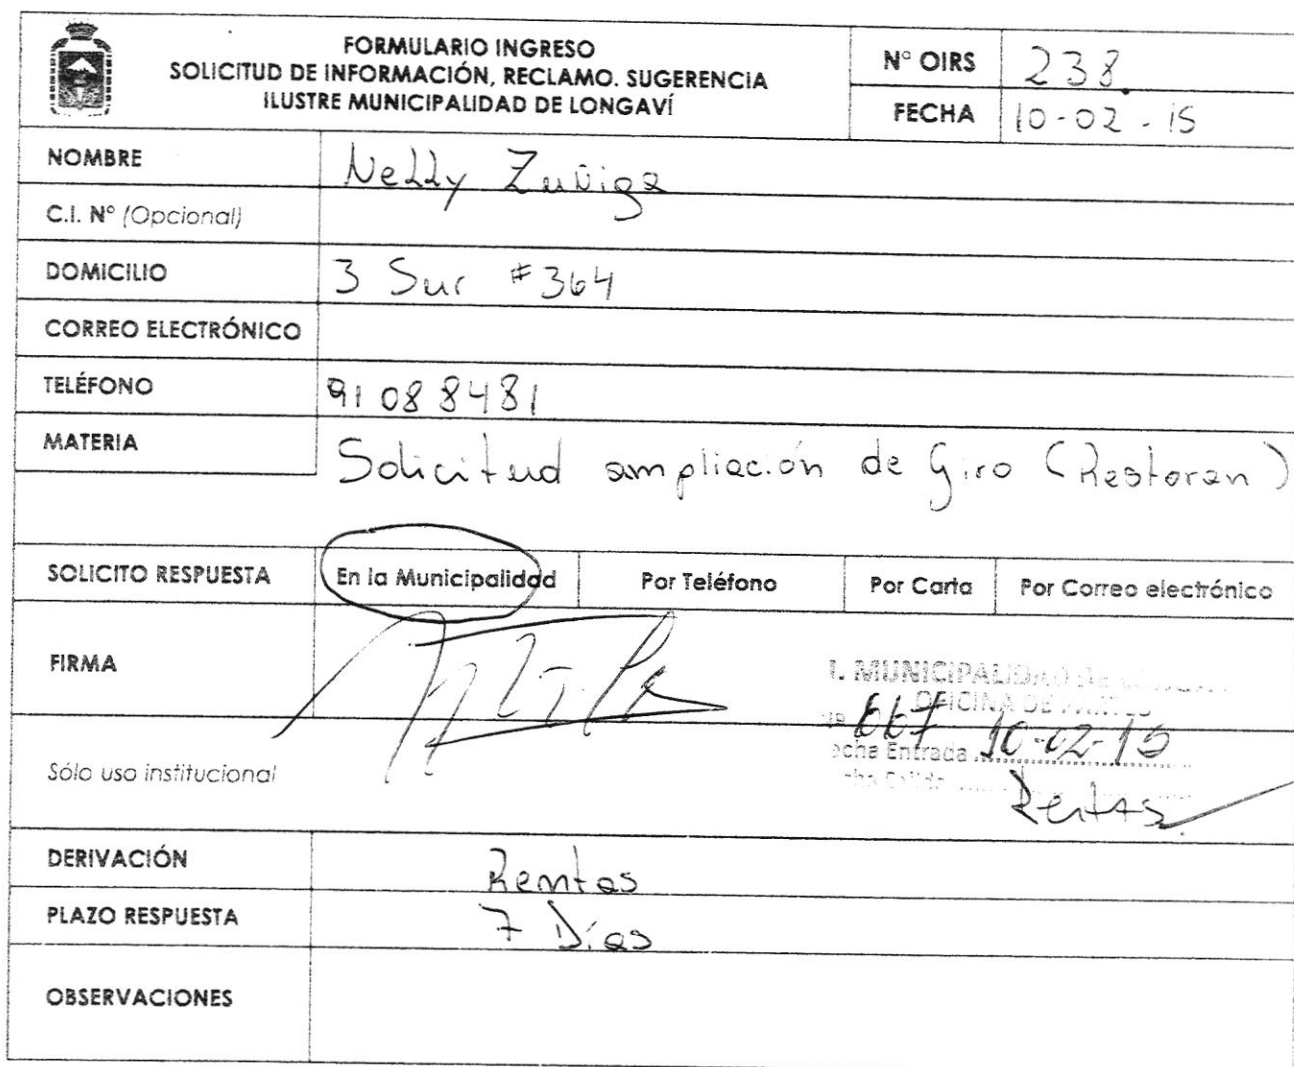 FORMULARIO INGRESO
SOLICITUD DE INFORMACIÓN, RECLAMO. SUGERENCIA
ILUSTRE MUNICIPALIDAD DE LONGAVÍ
N° OIRS 238.
FECHA 10-02-15
NOMBRE Nelly Zuñiga
C.I. N° (Opcional)
DOMICILIO 3 Sur #364
CORREO ELECTRÓNICO
TELÉFONO 91088481
MATERIA Solicitud ampliación de Giro (Restoran)
SOLICITO RESPUESTA En la Municipalidad Por Teléfono Por Carta Por Correo electrónico
FIRMA
I. MUNICIPALIDAD DE
OFICINA DE PARTES
667 10-02-15
Entrada
Rentas
Sólo uso institucional
DERIVACIÓN Rentas
PLAZO RESPUESTA 7 Días
OBSERVACIONES